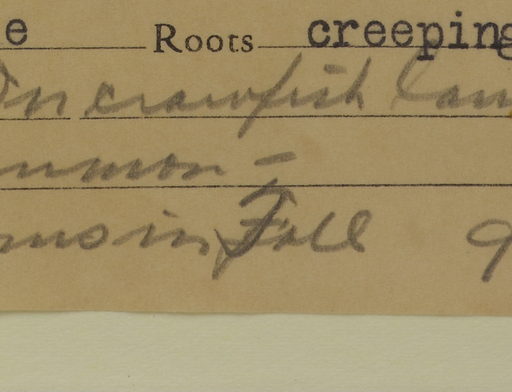 e Roots creeping
On crawfish lan
mmon –
ms in Fall 9